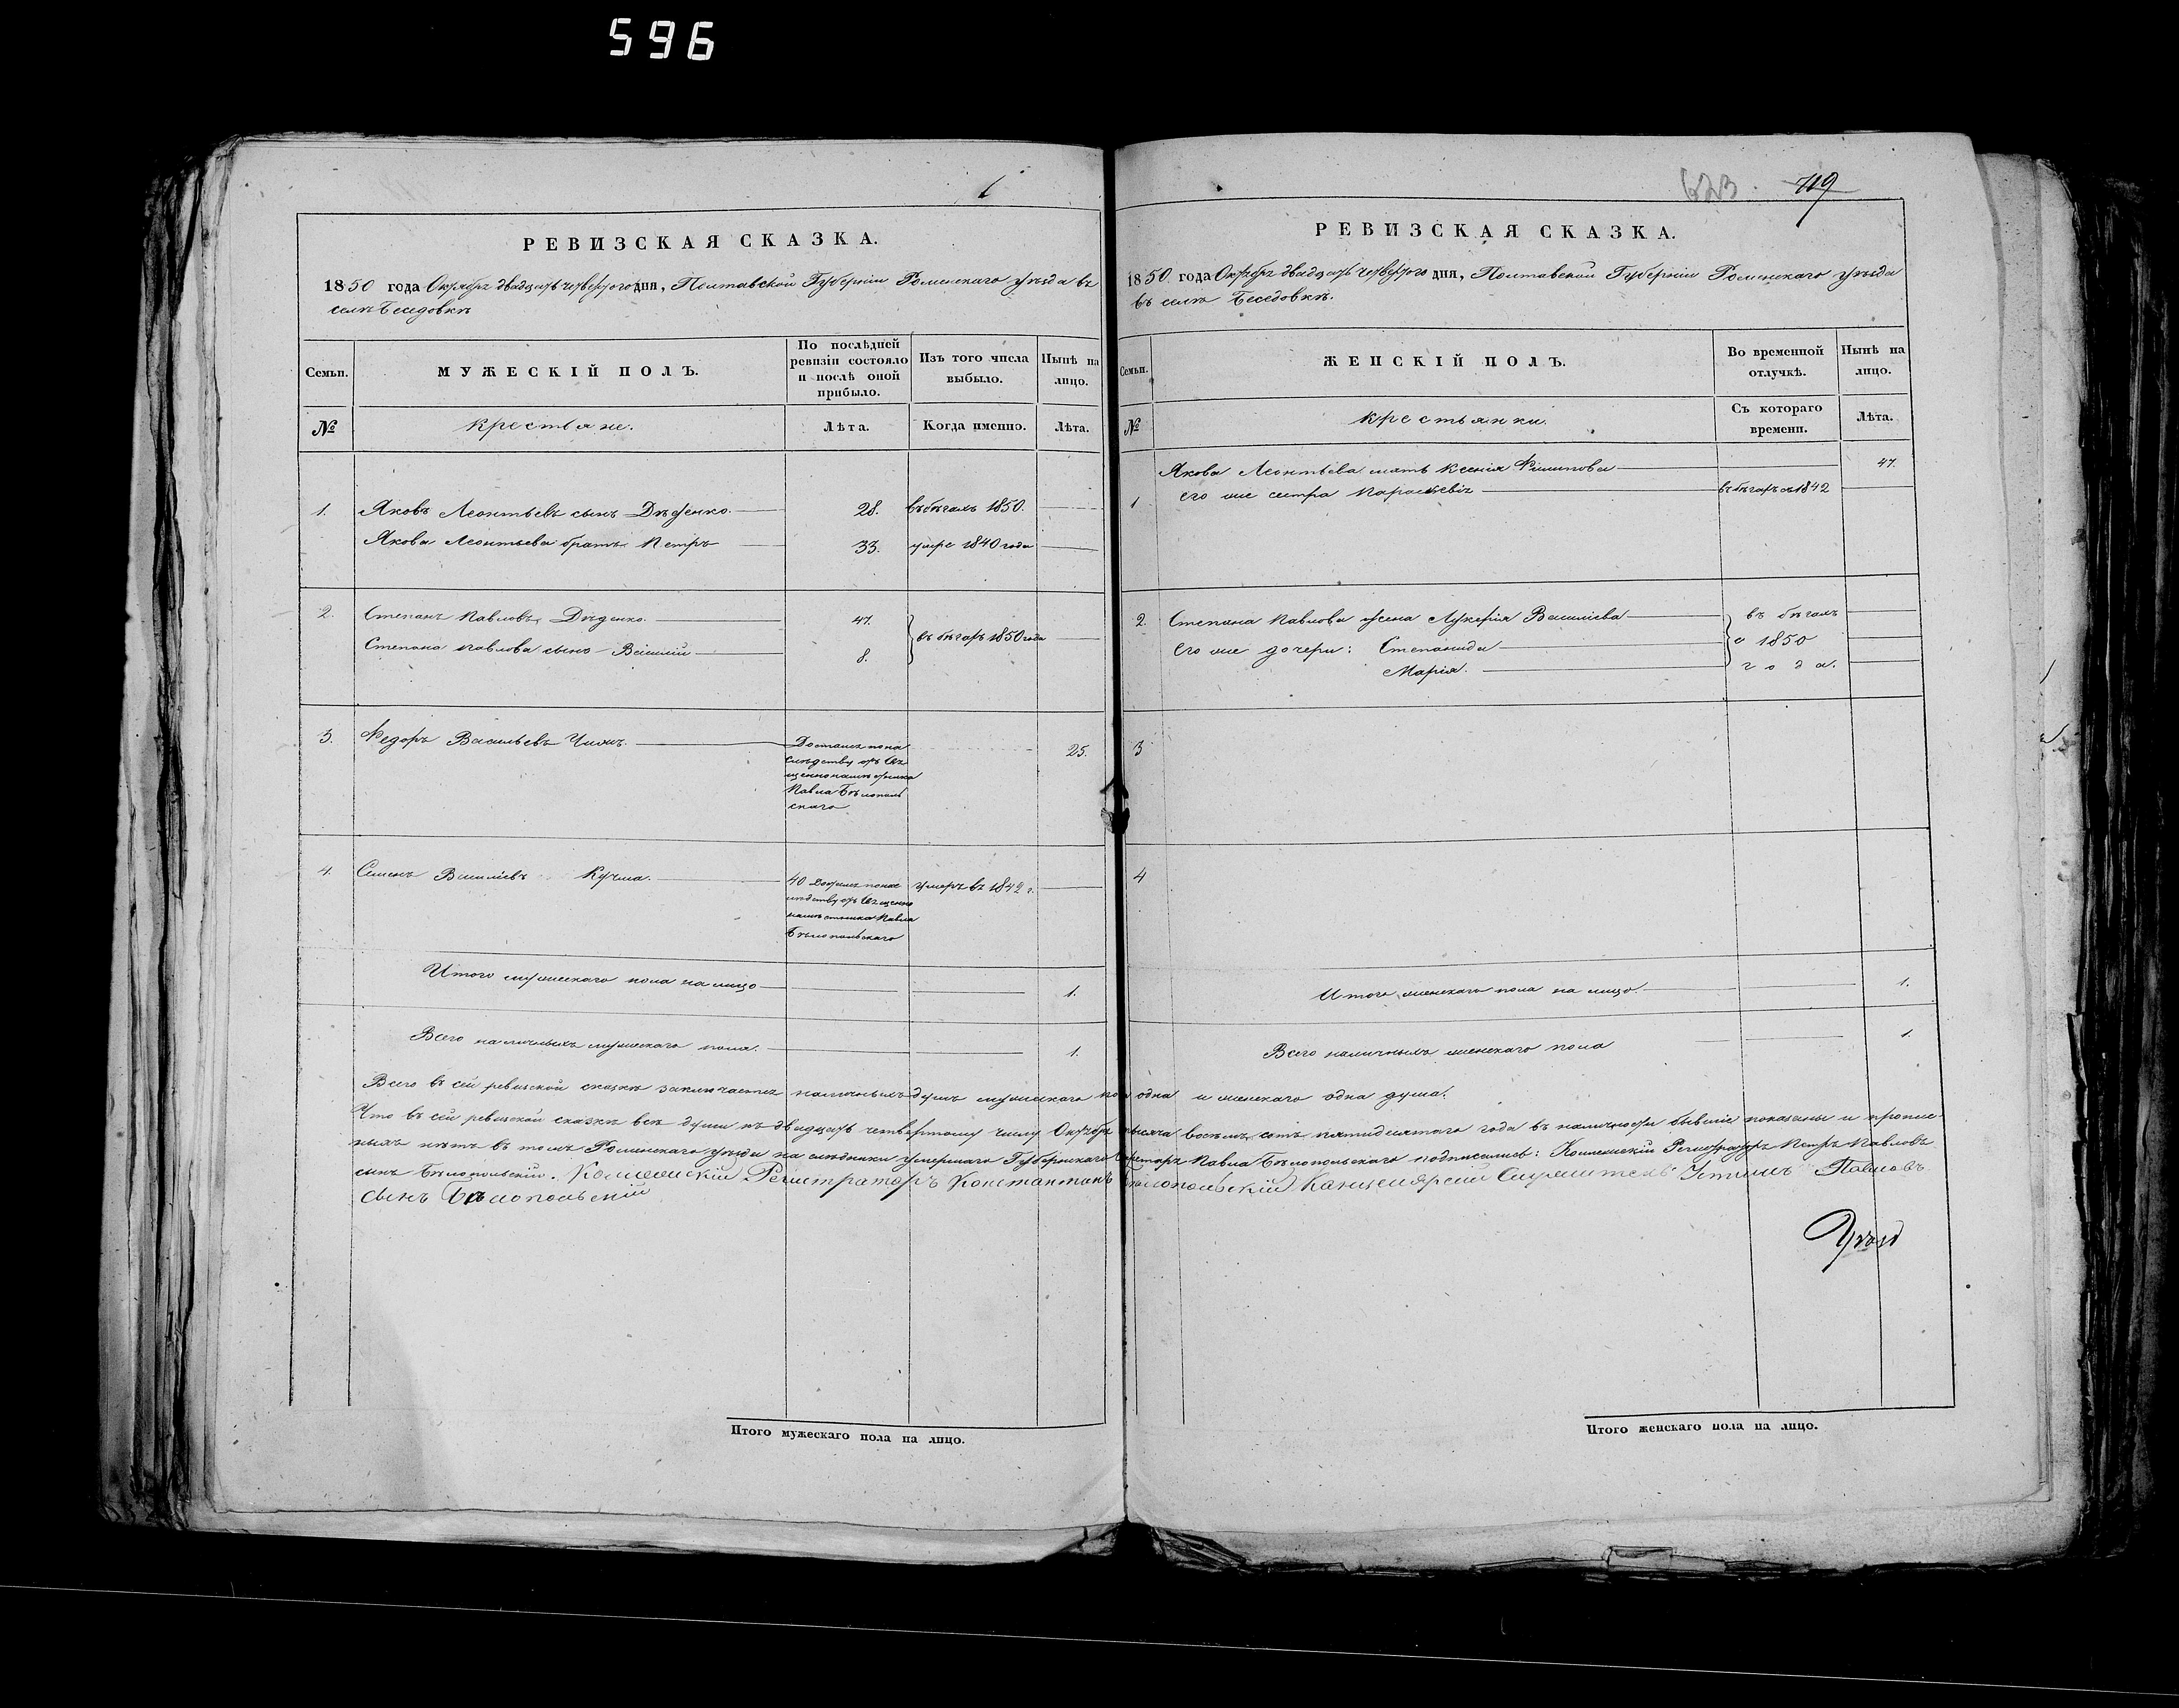 596
РЕВИЗСКАЯ СКАЗКА.
1850 года Октября двадцать четвертого дня, Полтавской Губернии Роменскаго уѣзда въ
селѣ Беседовкѣ
Семьи.
МУЖЕСКІЙ ПОЛЪ.
По послѣдней
ревизіи состояло
и послѣ оной
прибыло.
Изъ того числа
выбыло.
Нынѣ на
лицо.
№
крестьяне.
Лѣта.
Когда именно.
Лѣта.
1. Яковъ Леонтьевъ сынъ Дѣденко. 28. въ бѣгахъ 1850.
Якова Леонтьева братъ Петръ 33. умре 1840 года
2. Степанъ Павловъ Дѣденко. 47.
въ бѣгахъ 1850 года
Степана Павлова сынъ Василій 8.
3. Федоръ Васильевъ 25.
Достался по на
слѣдству отъ
Павла Бѣлополь
скаго
4. Семенъ Василіевъ Кучма. 40 умеръ въ 1842 г.
Павла
Бѣлопольскаго
Итого мужескаго пола на лицо 1.
Всего наличныхъ мужескаго пола. 1.
623 719
РЕВИЗСКАЯ СКАЗКА.
1850 года Октября двадцать четвертого дня, Полтавской Губерніи Роменскаго уѣзда
въ селѣ Беседовкѣ.
Семьи.
ЖЕНСКІЙ ПОЛЪ.
Во временной
отлучкѣ.
Нынѣ на
лицо.
№
крестьянки.
Съ котораго
времени.
Лѣта.
1 Якова Леонтьева мать Ксенія Филипова 47.
его же сестра Параскевія въ бѣгахъ съ 1842
2. Степана Павлова жена Лукерія Василіева въ бѣгахъ
Его же дочери: Степанида с 1850
Марія. года.
3
4
Итого женскаго пола на лицо. 1.
Всего наличныхъ женскаго пола 1.
Всего въ сей ревизской сказкѣ заключается наличныхъ душъ мужескаго пола одна и женскаго одна душа.
Что въ сей ревизской сказкѣ всѣ души къ двадцать четвертому числу Октября тысяча восемь сотъ пятидесятого года въ наличности бывшіе показаны и пропис
ныхъ нѣтъ въ томъ Роменскаго уѣзда наслѣдники умершаго Губернскаго Секретаря Павла Бѣлопольскаго подписались: Колежскій Регистраторъ Петръ Павловъ
сынъ Бѣлопольскій. Колежскій Регистраторъ Константинъ Бѣлопольскій Канцелярскій Служитель Устимъ Павловъ
сынъ Бѣлопольскій
Итого мужескаго пола на лицо.
Итого женскаго пола на лицо.